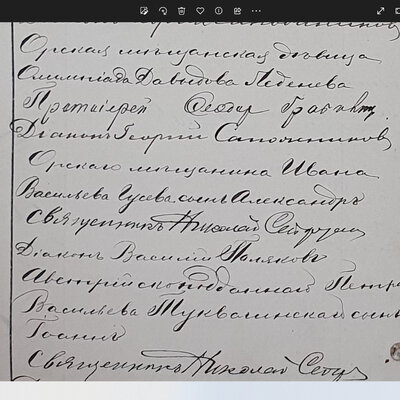 Орская мѣщанская дѣвица
Олимпіада Давидова Леденева
Протоіерей Ѳеодор
Діаконъ Георгій Сапожников
Орскаго мѣщанина Ивана
Васильева Гусева сынъ Александръ
Священникъ Николай
Діаконъ Василій Поляковъ
Австрійскоподданнаго Петра
Васильева сынъ
Іоаннъ
Священникъ Николай